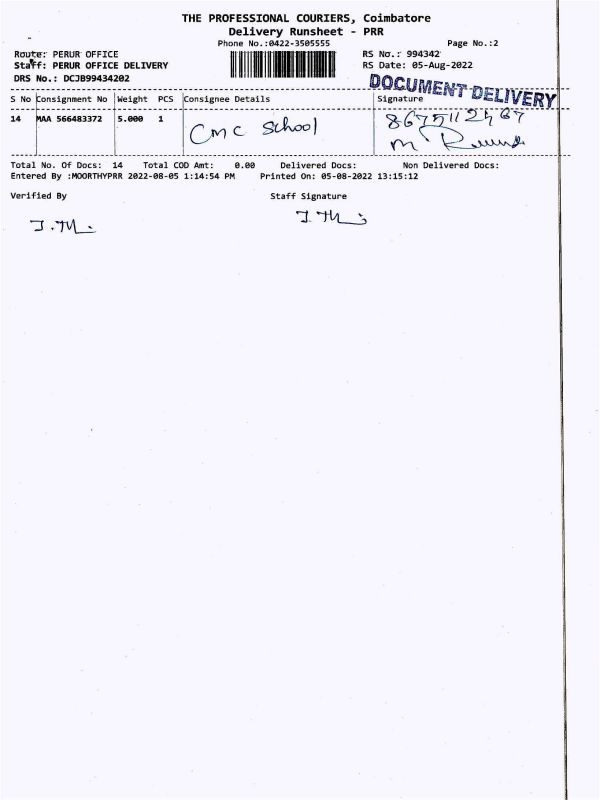 THE PROFESSIONAL COURIERS, Coimbatore
Delivery Runsheet - PRR
Phone No.:0422-3505555 Page No.:2
Route: PERUR OFFICE RS No.: 994342
Staff: PERUR OFFICE DELIVERY RS Date: 05-Aug-2022
DRS No.: DCJB99434202
DOCUMENT DELIVERY
S No Consignment No Weight PCS Consignee Details Signature
14 MAA 566483372 5.000 1 CMC School
Total No. Of Docs: 14 Total COD Amt: 0.00 Delivered Docs: Non Delivered Docs:
Entered By :MOORTHYPRR 2022-08-05 1:14:54 PM Printed On: 05-08-2022 13:15:12
Verified By Staff Signature